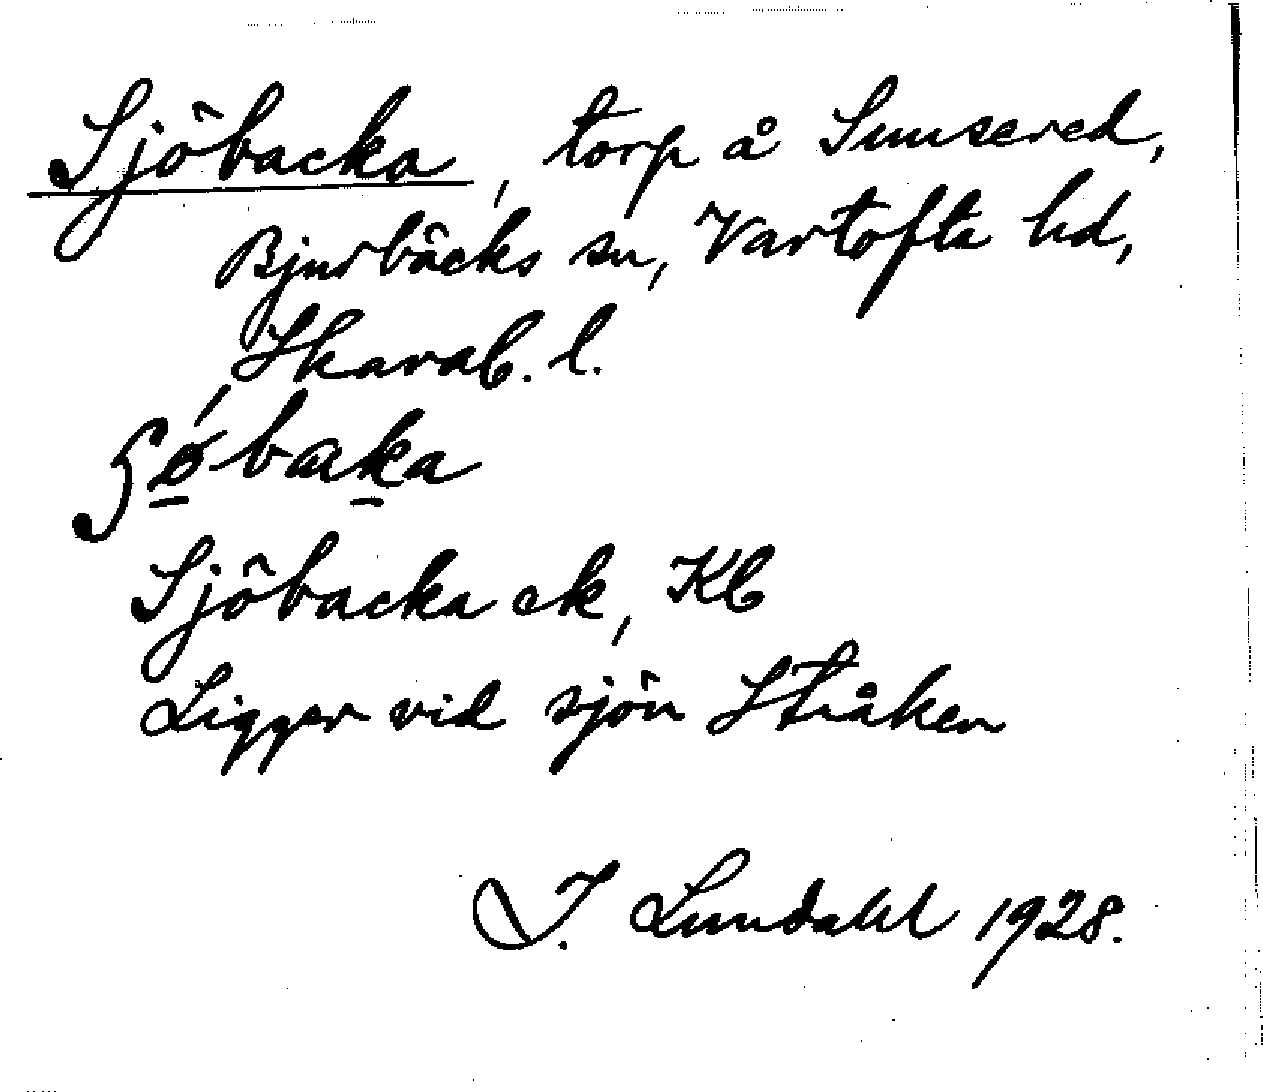 Sjöbacka, torp å Sunsered,
Bjurbäcks sn, Vartofta hd,
Skarab. l.
Sjöbacka ek, Kb
Ligger vid sjön Stråken
I. Lundahl 1928.